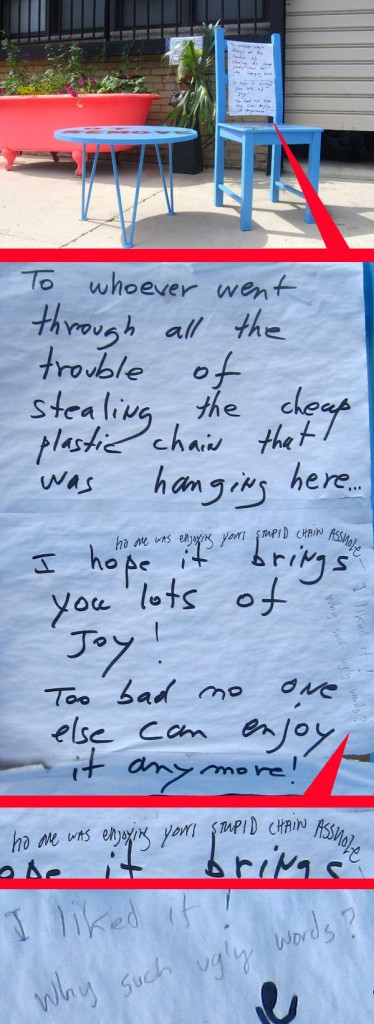 To whoever went
through all the
trouble of
stealing the cheap
plastic chain that
was hanging here...
no one was enjoying your STUPID CHAIN ASSHOLE
I hope it brings
you lots of
Joy!
Too bad no one
else can enjoy
it anymore!
I liked it!
Why such ugly words?
no one was enjoying your STUPID CHAIN ASSHOLE
ope it brings
I liked it!
Why such ugly words?